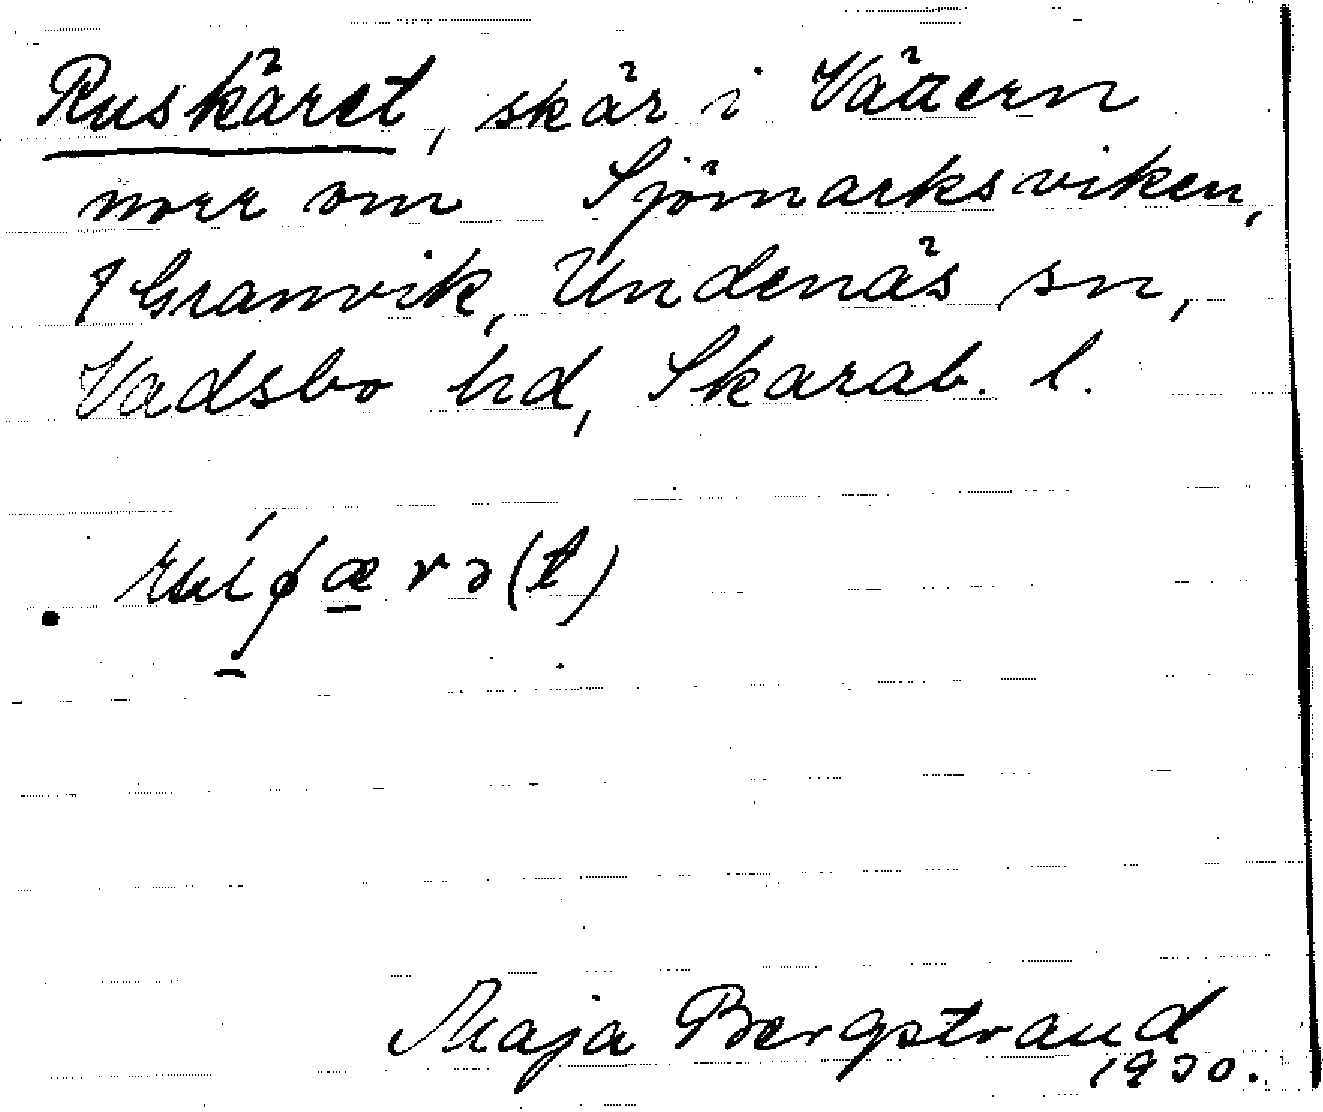 Ruskäret, skär i Vättern
norr om Sjömarksviken,
Granvik, Undenäs sn,
Vadsbo hd, Skarab. l.
Maja Bergstrand
1930.